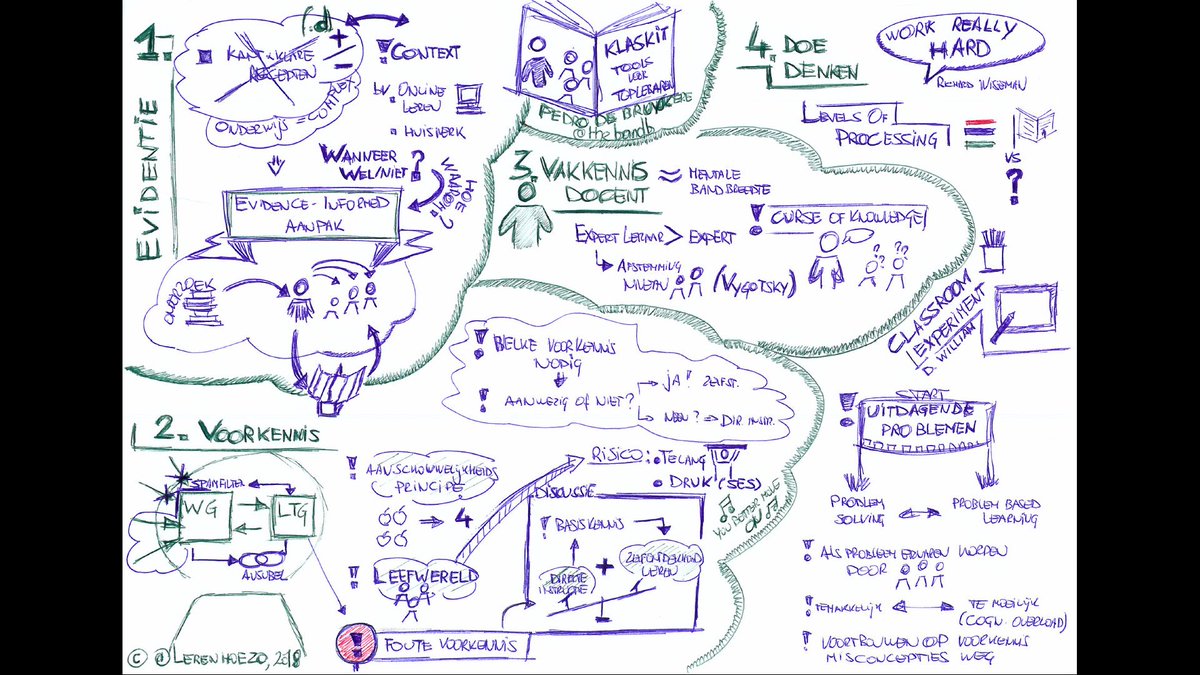 1.
EVIDENTIE
+
-
KANT & KLARE
RECEPTEN
ONDERWIJS = COMPLEX
! CONTEXT
bv. ONLINE
LEREN
HUISWERK
WANNEER
WEL/NIET ?
HOE ?
WAAROM
EVIDENCE-INFORMED
AANPAK
ONDERZOEK
KLASKIT
TOOLS
VOOR
TOPLERAREN
PEDRO DE BRUYCKERE
@thebandb
3. VAKKENNIS
DOCENT
≈ MENTALE
BANDBREEDTE
EXPERT LERAAR > EXPERT
AFSTEMMING
NIVEAU
(VYGOTSKY)
! CURSE OF KNOWLEDGE!
? ??
4. DOE
DENKEN
WORK REALLY
HARD
RICHARD WISEMAN
LEVELS OF
PROCESSING
VS
?
CLASSROOM
EXPERIMENT
D. WILLIAM
2. VOORKENNIS
SPAMFILTER
WG
LTG
AUSUBEL
! WELKE VOORKENNIS
NODIG
! AANWEZIG OF NIET?
JA! ZELFST.
NEEN? ⇒ DIR. INSTR.
! AANSCHOUWELIJKHEIDS
PRINCIPE
4
! LEEFWERELD
RISICO: • TE LANG
• DRUK! (SES)
DISCUSSIE
! BASISKENNIS
DIRECTE
INSTRUCTIE
+
ZELFONTDEKKEND
LEREN
YOU BETTER MOVE
ON
! FOUTE VOORKENNIS
START
! UITDAGENDE
PROBLEMEN
PROBLEM
SOLVING
PROBLEM BASED
LEARNING
! ALS PROBLEEM ERVAREN WORDEN
DOOR
! TE MAKKELIJK
TE MOEILIJK
(COGN. OVERLOAD)
! VOORTBOUWEN OP VOORKENNIS
MISCONCEPTIES WEG
© @LERENHOEZO, 2018